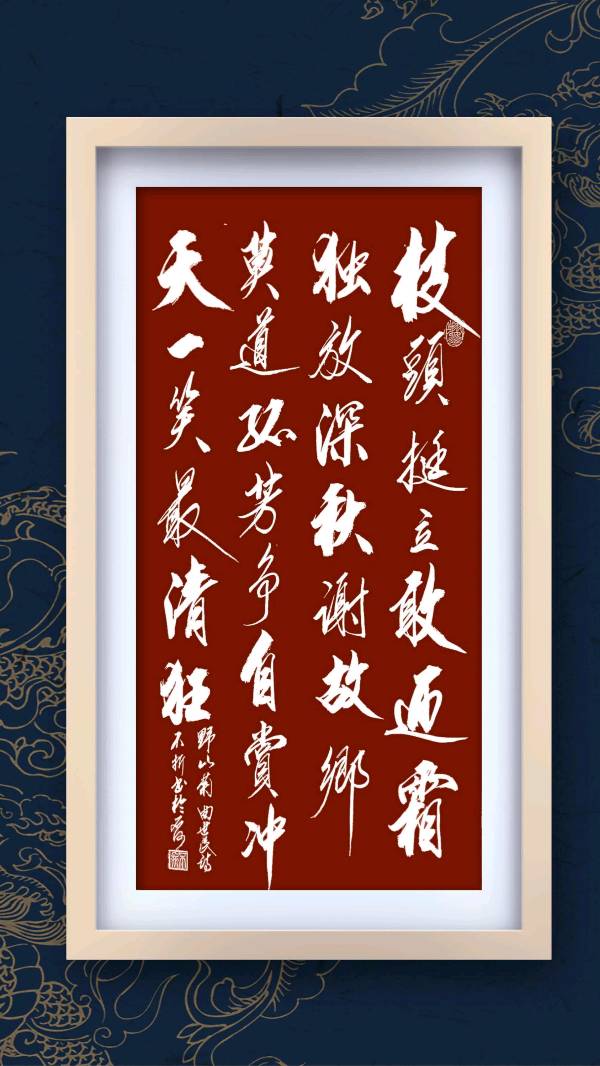 枝頭挺立敢迎霜
独放深秋谢故鄉
莫道孤芳争自赏冲
天一笑最清狂
野山菊曲世民诗
不折书於